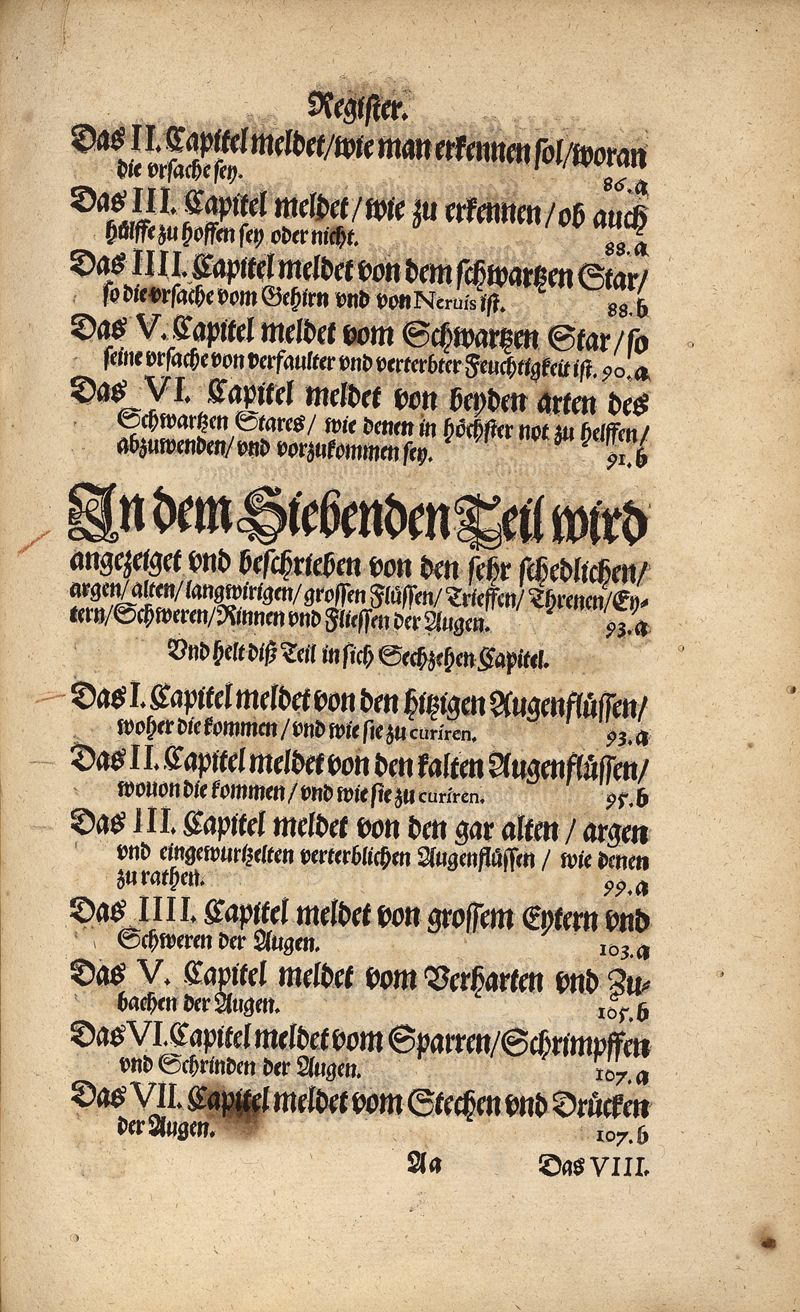 Register.
Das II. Capitel meldet/wie man erkennen sol/woran
die vrsache sey.
86.a
Das III. Capitel meldet/wie zu erkennen/ob auch
hülffe zu hoffen sey oder nicht.
88.a
Das IIII. Capitel meldet von dem schwartzen Star/
so die vrsache vom Gehirn vnd von Neruis ist.
88.b
Das V. Capitel meldet vom Schwartzen Star/so
seine vrsache von verfaulter vnd verterbter Feuchtigkeit ist. 90.a
Das VI. Capitel meldet von beyden arten des
Schwartzen Stares/ wie denen in höchster not zu helffen/
abzuwenden/vnd vorzukommen sey.
91.b
In dem Siebenden Teil wird
angezeiget vnd beschrieben von den sehr schedlichen/
argen/alten/langwirigen/grossen Flüssen/Trieffen/Threnen/Ey-
tern/Schweren/Rinnen vnd Fliessen der Augen.
93.a
Vnd helt diß Teil in sich Sechzehen Capitel.
Das I. Capitel meldet von den hitzigen Augenflüssen/
woher die kommen/vnd wie sie zu curiren.
93.a
Das II. Capitel meldet von den kalten Augenflüssen/
wouon die kommen/vnd wie sie zu curiren.
95.b
Das III. Capitel meldet von den gar alten / argen
vnd eingewurtzelten verterblichen Augenflüssen / wie denen
zu rathen.
99.a
Das IIII. Capitel meldet von grossem Eytern vnd
Schweren der Augen.
103.a
Das V. Capitel meldet vom Verharten vnd Zu-
bachen der Augen.
105.b
Das VI. Capitel meldet vom Sparren/Schrimpffen
vnd Schrinden der Augen.
107.a
Das VII. Capitel meldet vom Stechen vnd Drücken
der Augen.
107.b
Aa Das VIII.